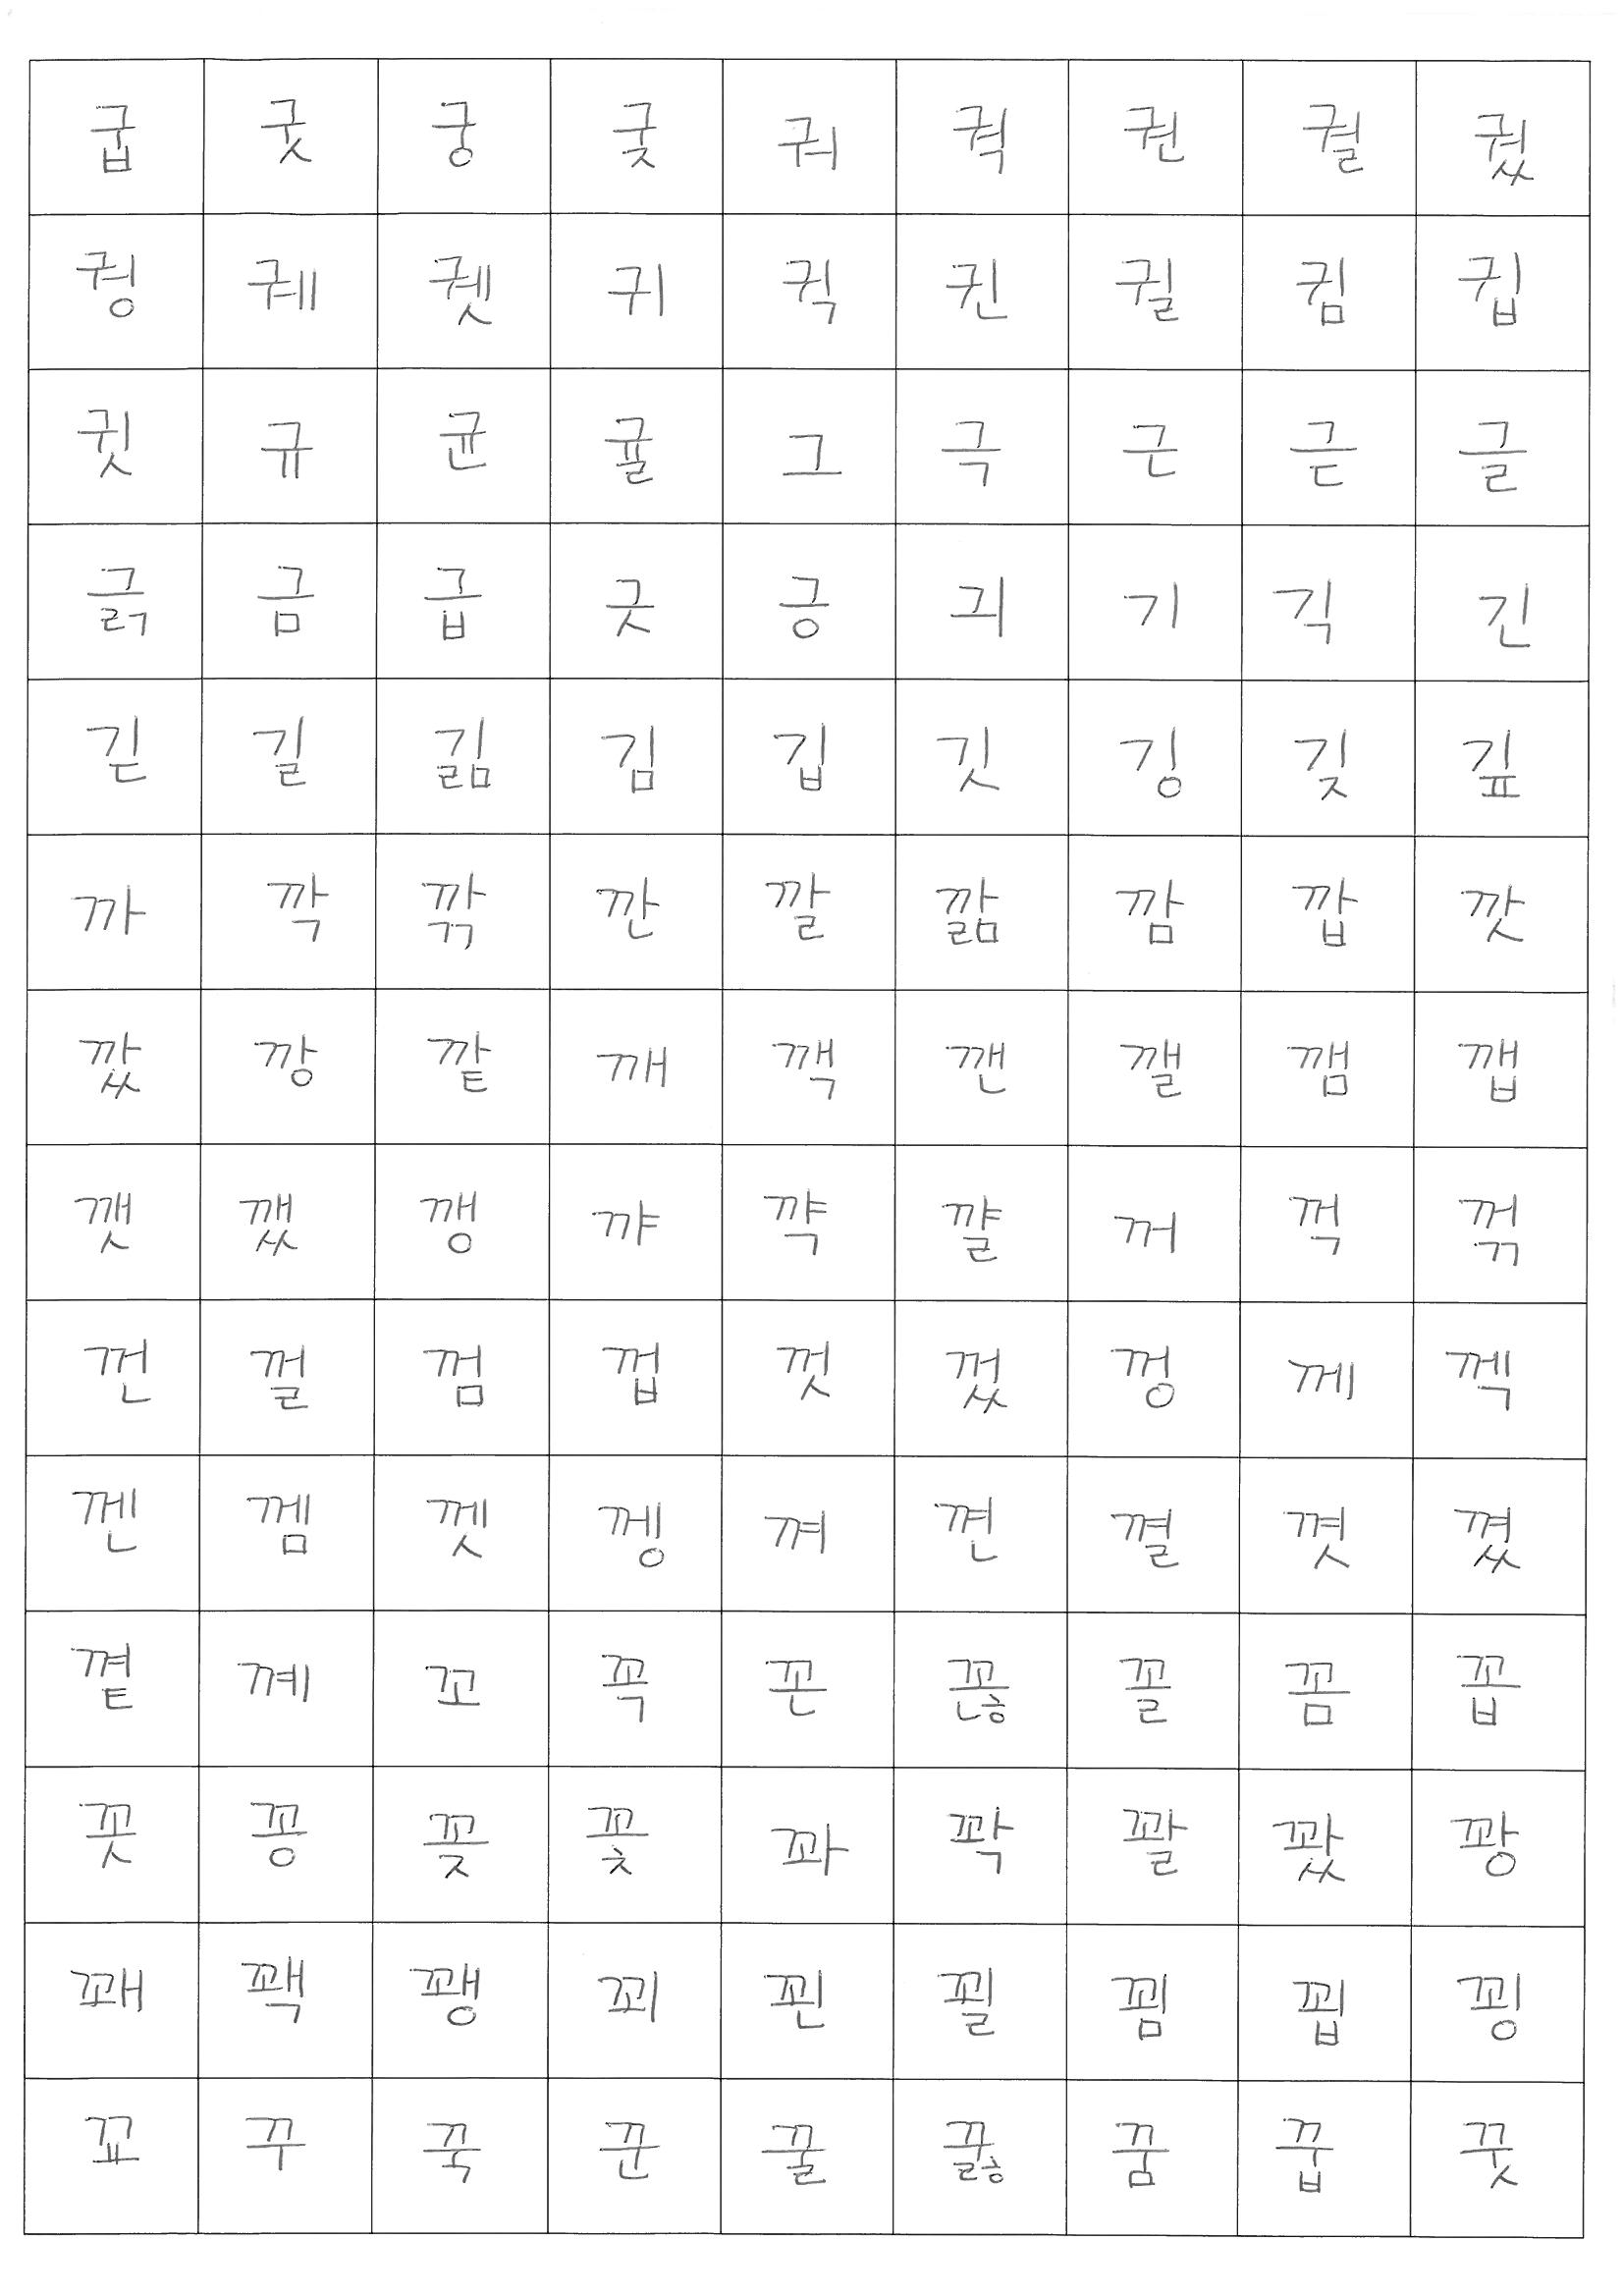 굽 굿 궁 궂 궈 궉 권 궐 궜
궝 궤 궷 귀 귁 귄 귈 귐 귑
귓 규 균 귤 그 극 근 귿 글
긁 금 급 긋 긍 긔 기 긱 긴
긷 길 긺 김 깁 깃 깅 깆 깊
까 깍 깎 깐 깔 깖 깜 깝 깟
깠 깡 깥 깨 깩 깬 깰 깸 깹
깻 깼 깽 꺄 꺅 꺌 꺼 꺽 꺾
껀 껄 껌 껍 껏 껐 껑 께 껙
껜 껨 껫 껭 껴 껸 꼘 꼇 꼈
꼍 꼐 꼬 꼭 꼰 꼲 꼴 꼼 꼽
꼿 꽁 꽂 꽃 꽈 꽉 꽐 꽜 꽝
꽤 꽥 꽹 꾀 꾄 꾈 꾐 꾑 꾕
꾜 꾸 꾹 꾼 꿀 꿇 꿈 꿉 꿋